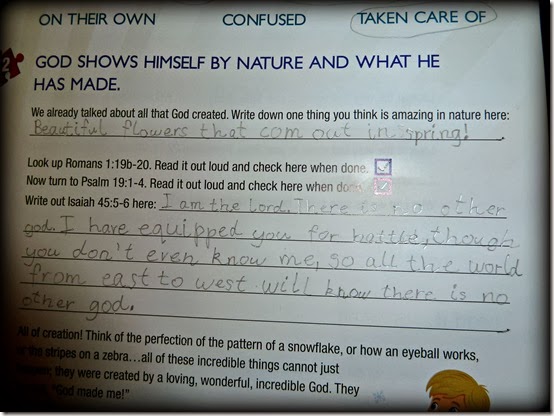 ON THEIR OWN CONFUSED TAKEN CARE OF
2
GOD SHOWS HIMSELF BY NATURE AND WHAT HE
HAS MADE.
We already talked about all that God created. Write down one thing you think is amazing in nature here:
Beautiful flowers that com out in spring!
Look up Romans 1:19b-20. Read it out loud and check here when done.
Now turn to Psalm 19:1-4. Read it out loud and check here when done.
Write out Isaiah 45:5-6 here: I am the Lord. There is no other
god. I have equipped you for battle, though
you don't even know me, so all the world
from east to west will know there is no
other god.
All of creation! Think of the perfection of the pattern of a snowflake, or how an eyeball works,
or the stripes on a zebra…all of these incredible things cannot just
they were created by a loving, wonderful, incredible God. They
"God made me!"